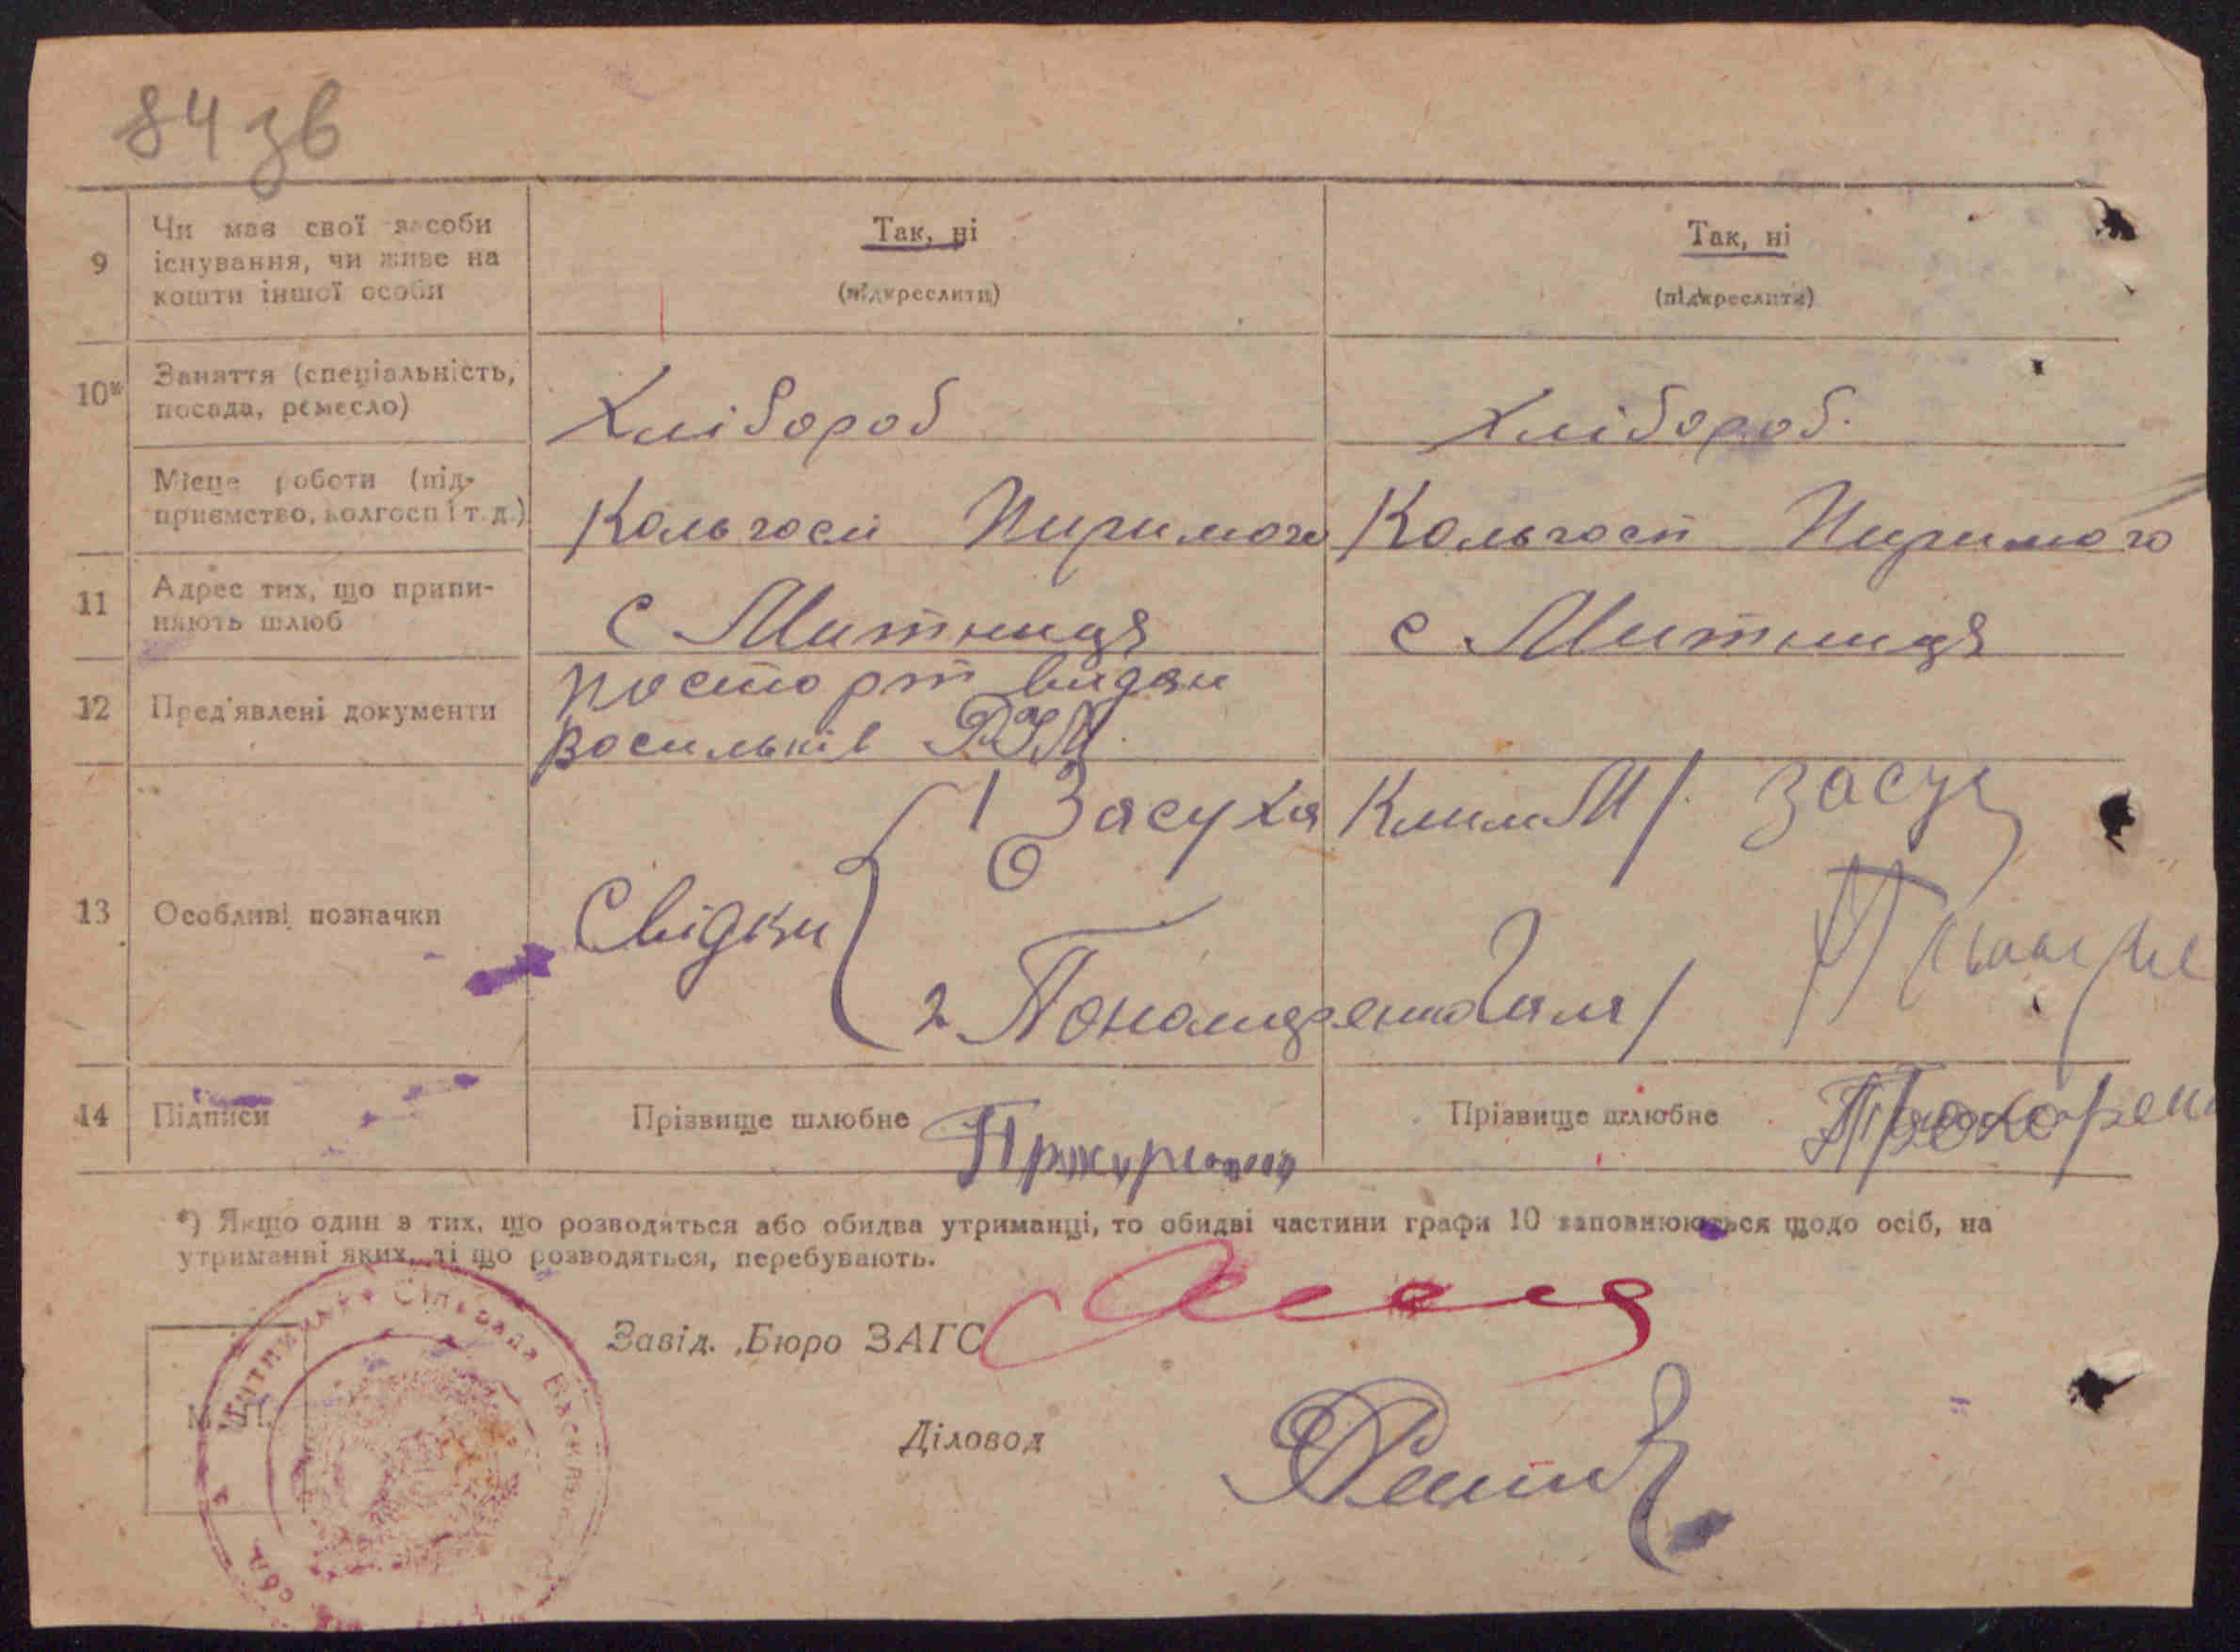 84 зв
9 Чи має свої засоби існування, чи живе на кошти іншої особи
Так, ні
(підкреслити)
Так, ні
(підкреслити)
10* Заняття (спеціальність, посада, ремесло)
Хлібороб
Хлібороб.
Місце роботи (підприємство, колгосп і т. д.)
Кольгосп
Кольгосп
11 Адрес тих, що припиняють шлюб
с Митниця
с Митниця
12 Пред'явлені документи
поспорт видан
Васильків РУМ.
13 Особливі позначки
Свідки
1 Засуха Клим М/. Засу
2. Пономаренко Галя/
14 Підписи
Прізвище шлюбне
Прізвище шлюбне Прокопен
*) Якщо один з тих, що розводяться або обидва утриманці, то обидві частини графи 10 заповнюються щодо осіб, на
утриманні яких, ті що розводяться, перебувають.
Завід. Бюро ЗАГС
М. П.
Діловод
Сільрада